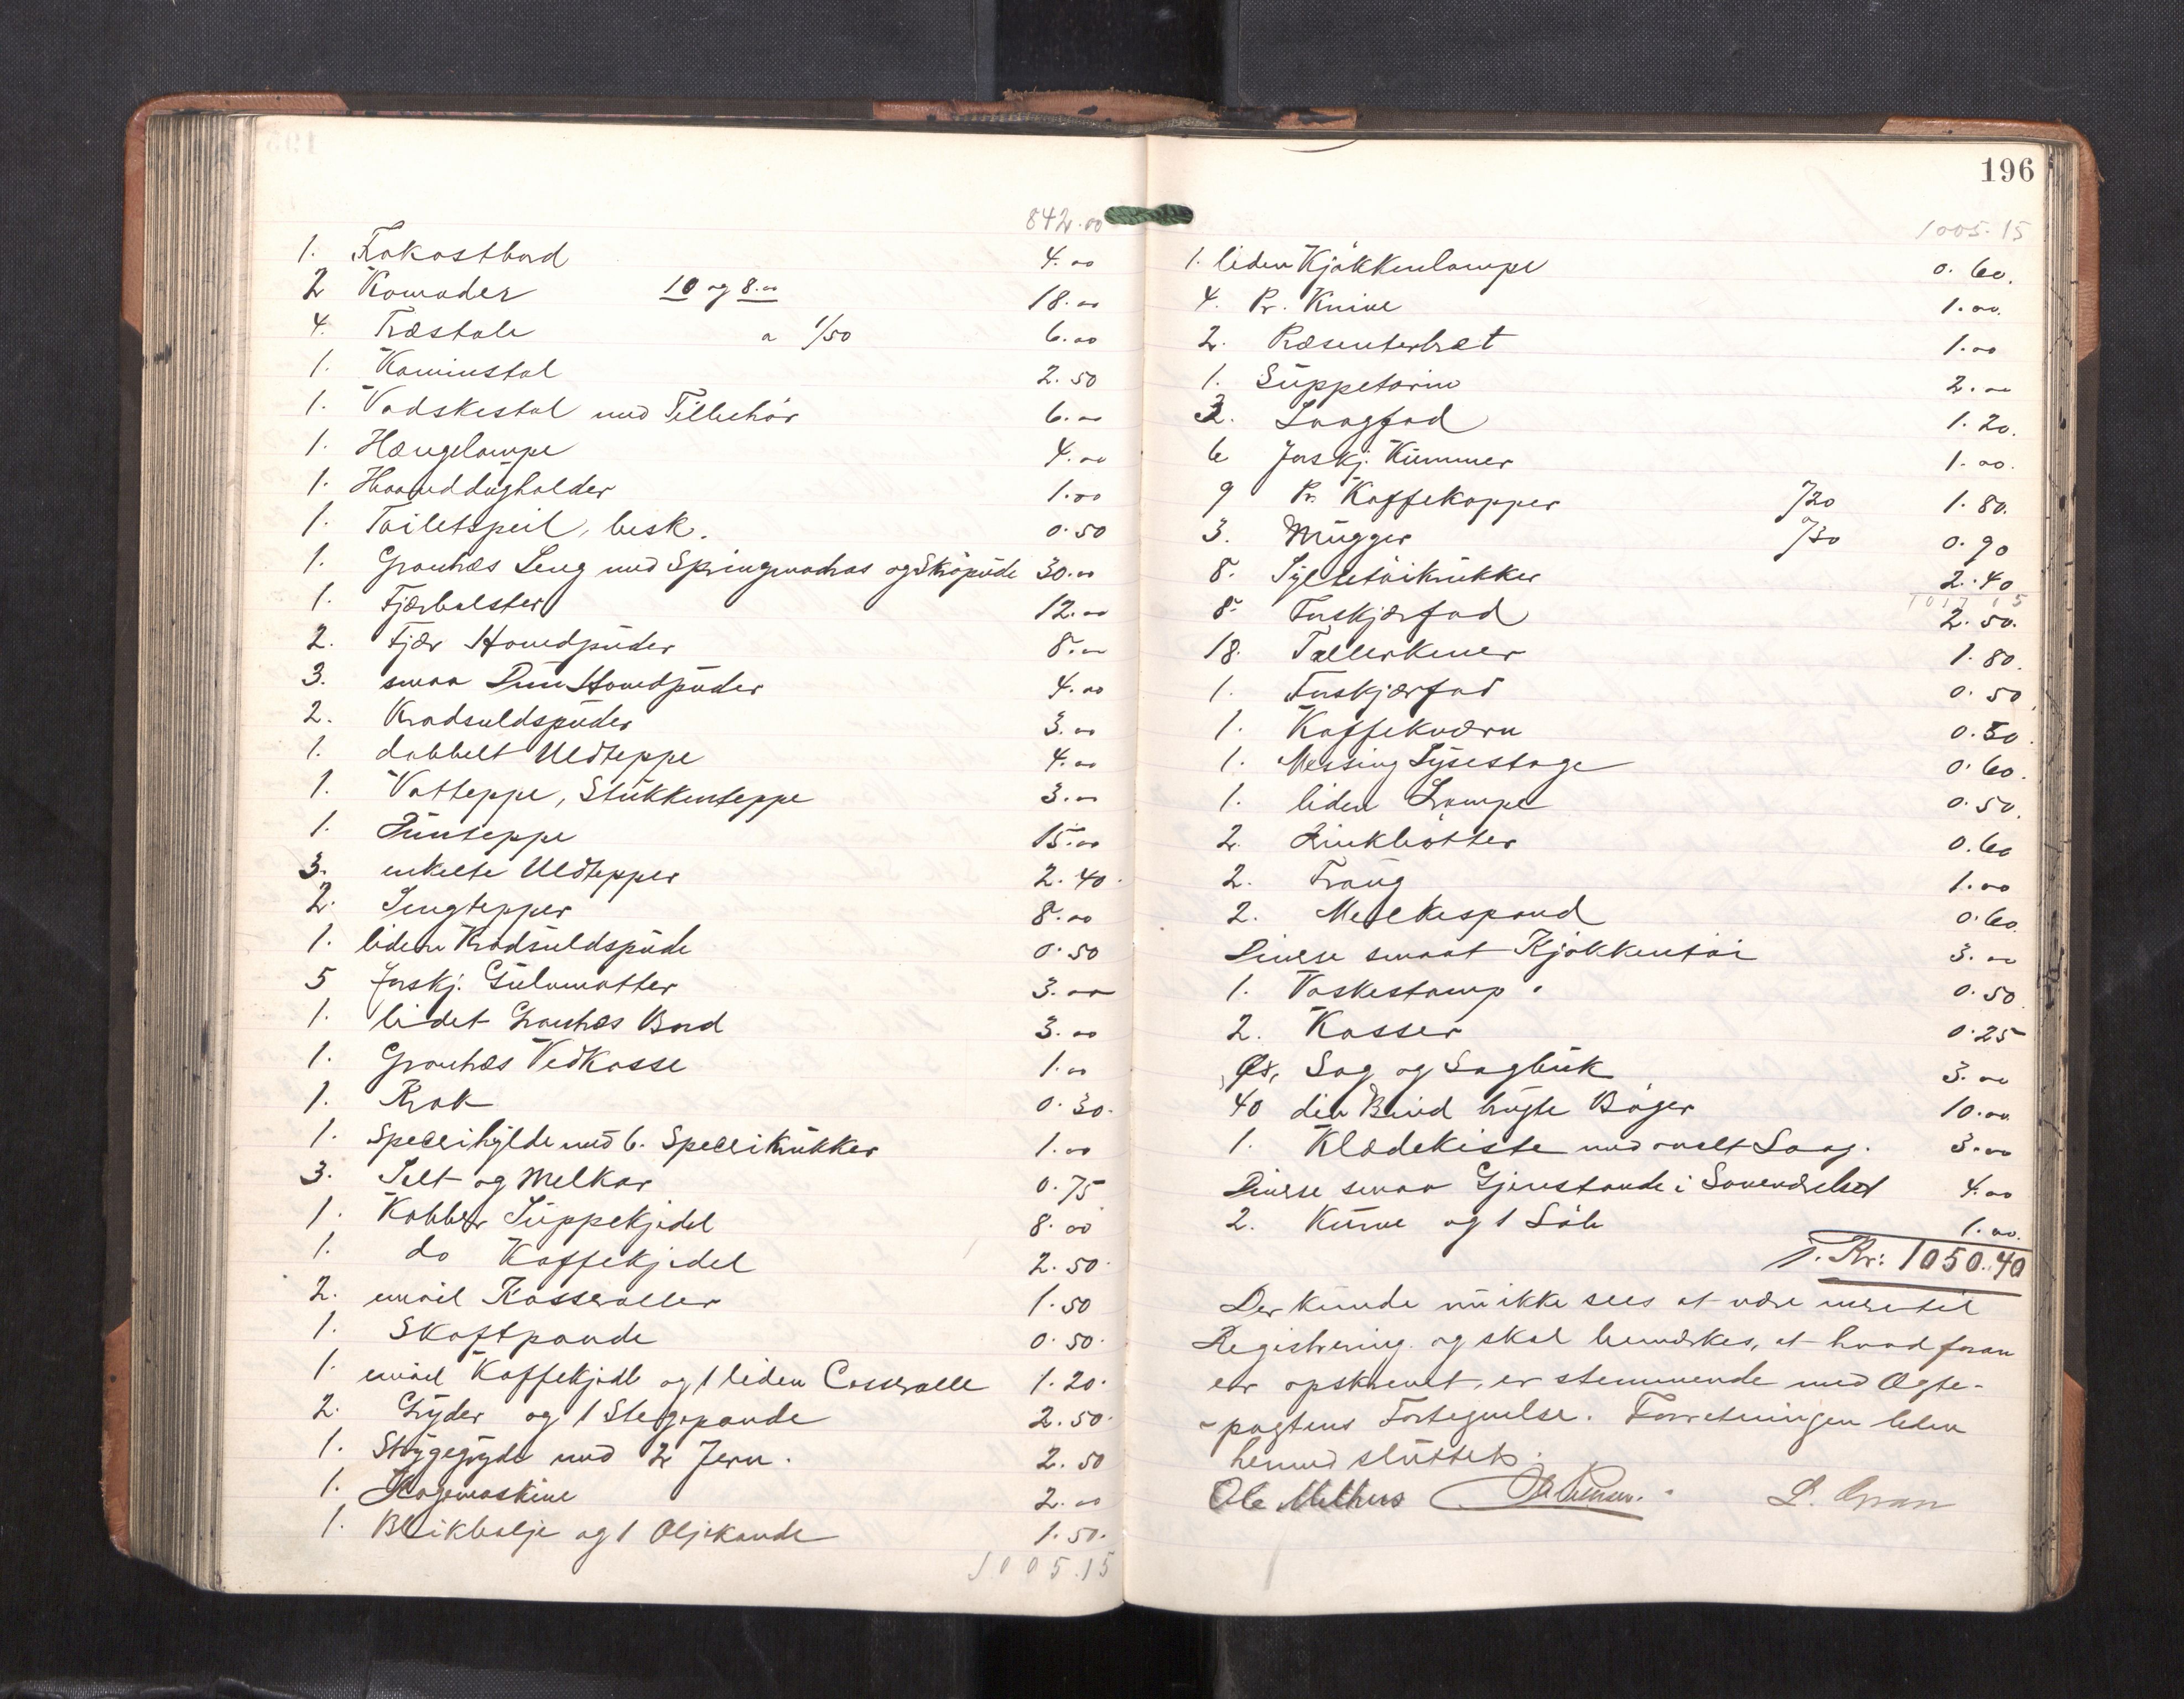 842.00
1. Frokostbord 4.00
2 Komoder 10 og 8.00 18.00
4. Træstole a 1/50 6.00
1. Kaminstol 2.50
1. Vadskestol med Tilbehør 6.00
1. Hængelampe 4.00
1. Haanddugholder 1.00
1. Toiletspeil, besk. 0.50
1. Grantræs Seng med Springmadras og Skråpude 30.00
1. Fjærbolster 12.00
2. Fjær Hovedpuder 8.00
3. smaa Dun Hovedpuder 4.00
2. Kraduldspuder 3.00
1. dobbelt Uldteppe 4.00
1. Vatteppe, Stukkenteppe 3.00
1. Dunteppe 15.00
3. enkelte Uldtepper 2.40
2. Sengtepper 8.00
1. liden Kraduldspude 0.50
5 forskj. Gulvmatter 3.00
1. lidet Grantræs Bord 3.00
1. Grantræs Vedkasse 1.00
1. Krak 0.30
1. Specerihylde med 6. Specerikrukker 1.00
3. Selt og Melkar 0.75
1. Kobber Suppekjedel 8.00
1. do Kaffekjedel 2.50
2. email Kasseroller 1.50
1. Skaftpande 0.50
1. email Kaffekjedl og 1 liden Casserolle 1.20
2. Gryder og 1 Stegepande 2.50
1. Strygegryde med 2 Jern. 2.50
1. Kogemaskine 2.00
1. Blikbalje og 1 Oljekande 1.50
1005.15
196
1005.15
1. liden Kjøkkenlampe 0.60.
4. Pr. Knive 1.00.
2. Præsenterbræt 1.00
1. Suppeterin 2.00
3. Laagfad 1.20.
6 forskj. Kummer 1.00.
9 Pr. Kaffekopper /20 1.80.
3. Mugger /30 0.90
8. Syltetøikrukker 2.40
1017 15
8. Inskjærfad 2.50.
18. Tallerkener 1.80.
1. Inskjærfad 0.50
1. Kaffekværn 0.50.
1. Messing Lysestage 0.60.
1. liden Lampe 0.50.
2. Zinkbøtter 0.60
2. Traug 1.00
2. Melkespand 0.60
Diverse smaat Kjøkkentøi 3.00
1. Vaskestamp. 0.50
2. Kasser 0.25
Øx, Sag og Sagbuk 3.00
40 div Bind brugte Bøger 10.00
1. Klædekiste med rundt Laag. 3.00
Diverse smaa Gjenstande i Soveværelset 4.00
2. Kurve og 1 Såle 1.00.
Kr: 1050.40
Der kunde nu ikke sees at være mere til
Registrering og skal bemærkes, at hvad foran
er opskrevet, er stemmende med Ægte-
pagtens Fortegnelse. Forretningen blev
hermed sluttet.
Ole Melhus L. Gran